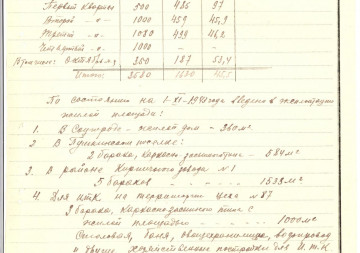 Первый квартал 500 486 97
Второй -"- 1000 459 45,9
Третий -"- 1080 499 46,2
Четвертый -"- 1000 —
В том числе: Октябрь м-ц 350 187 53,4
Итого: 3580
По состоянию на 1-XI-1940 года введено в эксплоатацию
жилой площади:
1. В Соцгороде - жилой дом - 360 м²
2. В поселке:
2 барака, каркасно засыпных - 584 м²
3. В районе Кирпичного завода №1
5 бараков - 1533 м²
4. Для ИТК на территории цеха №87
барака, каркаснозасыпного типа с
жилой площадью - 1000 м²
Столовая, баня, овощехранилище, водопровод
и другие хозяйственные постройки для И.Т.К.